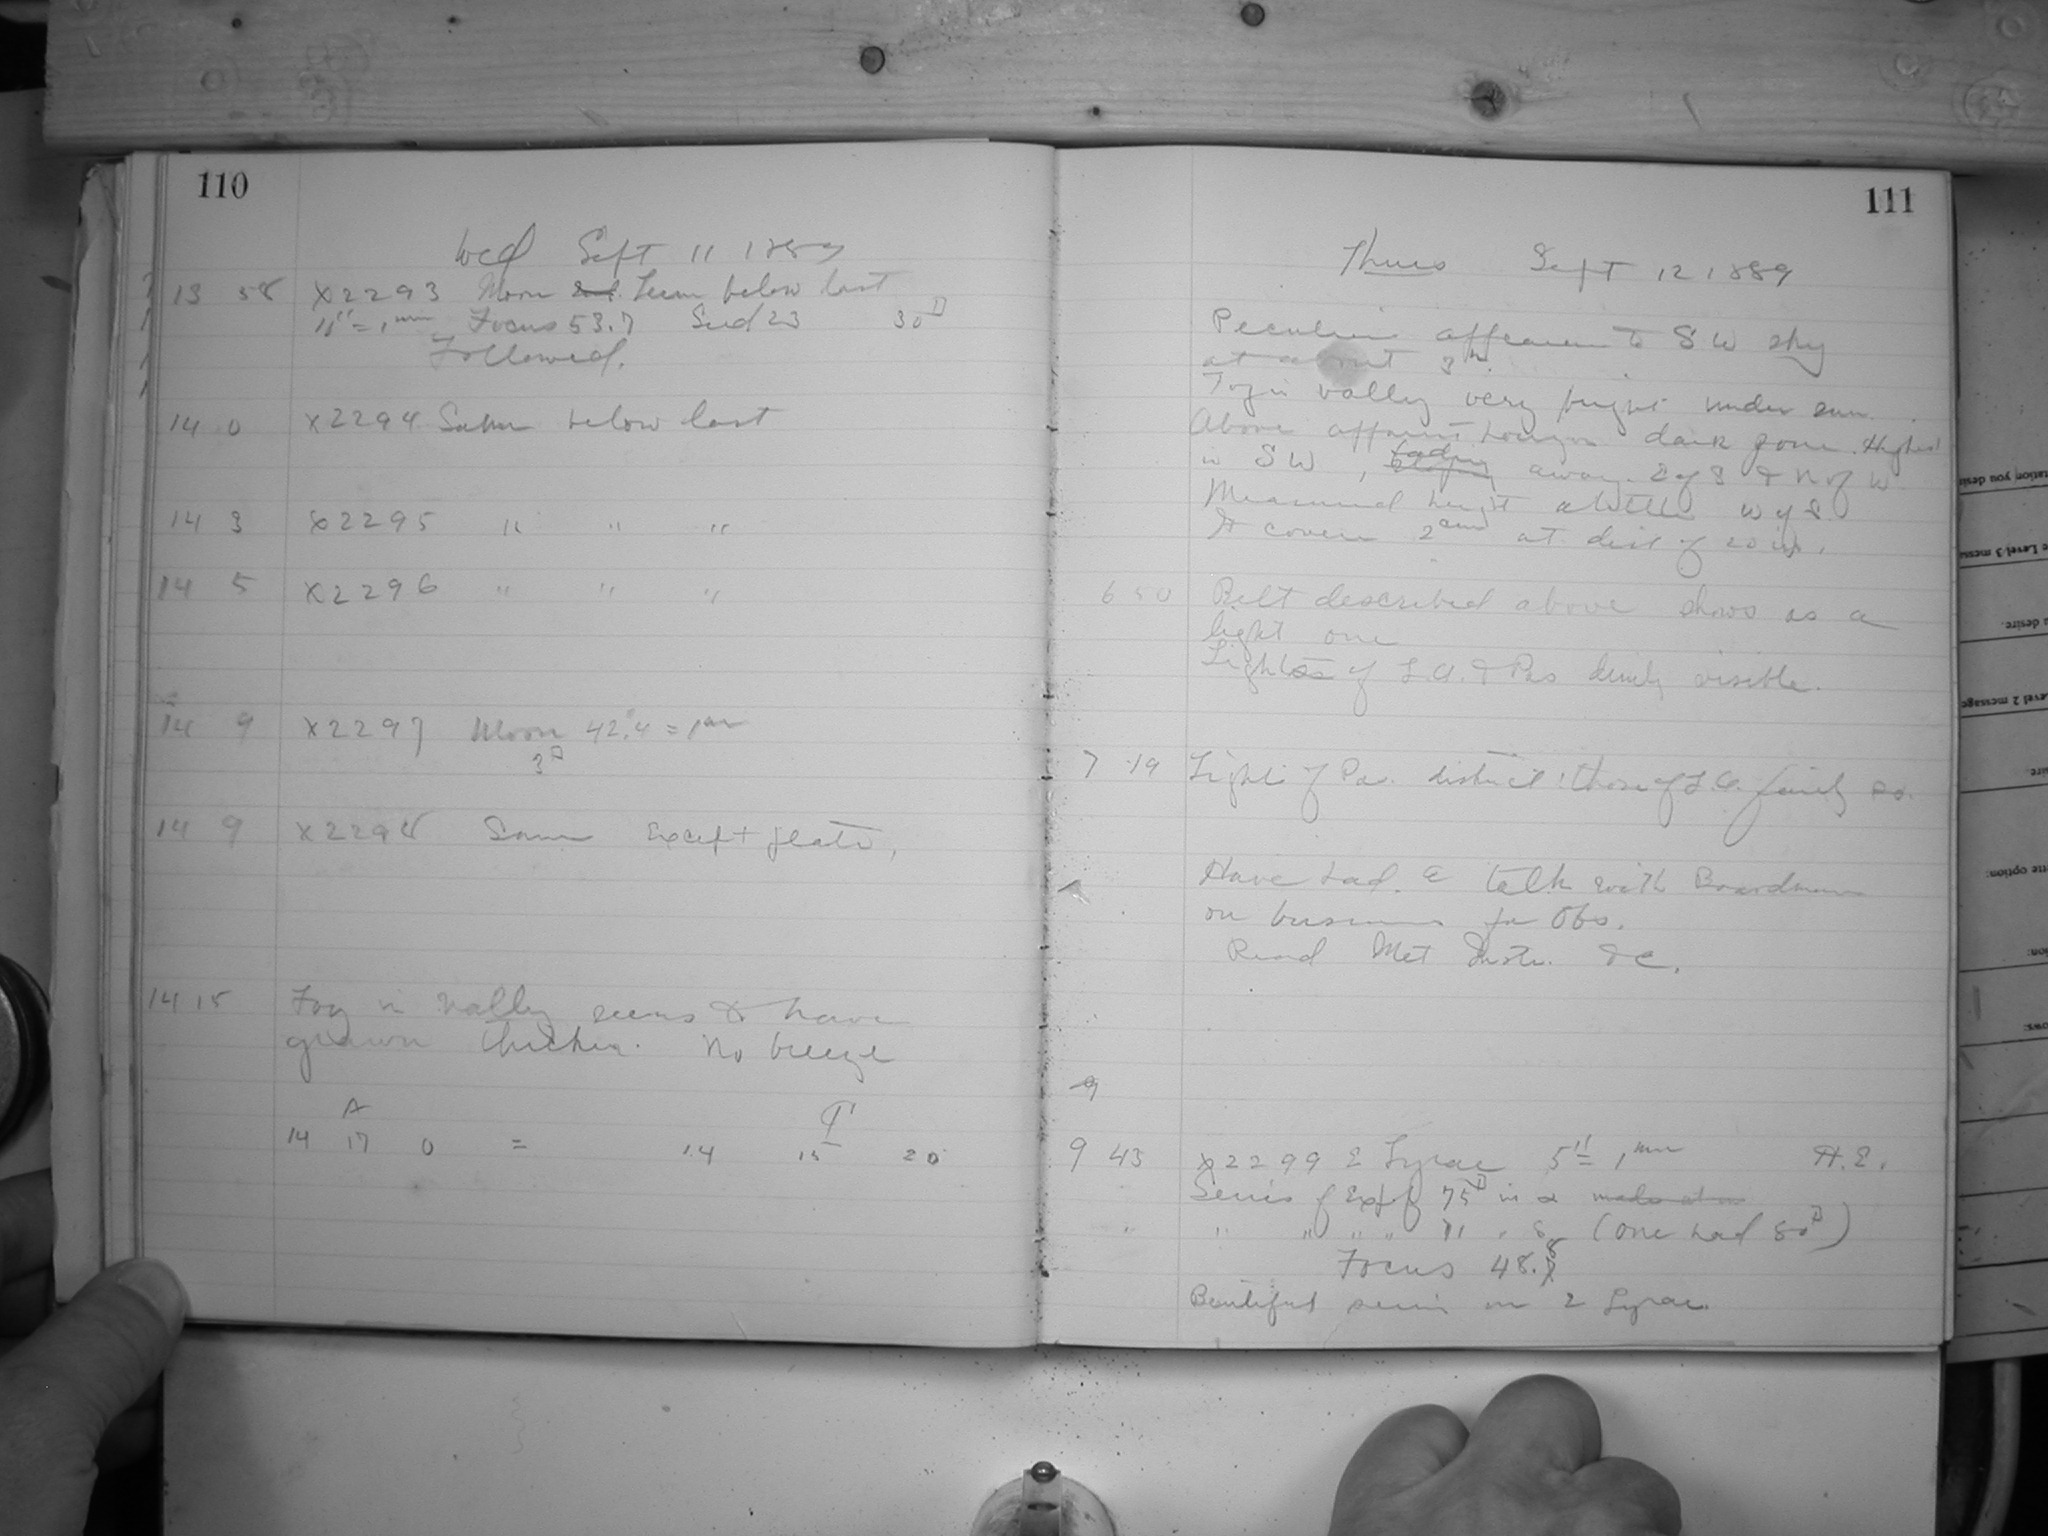 110
Wed Sept 11 1889
13 58 X2293 Moon below last
11" = 1mm Focus 53.7 Sid 23 30
Followed.
14 0 X2294 Same below last
14 3 X2295 " " "
14 5 X2296 " " "
14 9 X2297 Moon 42".4 = 1mm
3
14 9 X2298 Same Except plate,
14 15 Fog in valley seems to have
grown thicker. No breeze
A
14 17 0 = 14 15 20
111
Thurs Sept 12 1889
Peculiar appearance to SW sky
at about 3h.
Fog in valley very bright under sun.
Above apparent horizon dark zone. Highest
in SW, fading away E of S & N of W
Measured height a little W of S.
It covers 2cm at dist of 20 in.
6 50 Belt described above shows as a
light one
Lights of L.A. & Pas dimly visible.
7 19 Lights of Pas. distinct: those of L.A. fairly so.
Have had a talk with Boardman
on business for Obs.
Read Met Instr. &c.
9
9 43 X2299 E Lyrae 5" = 1mm H.E.
Series of Exp of 75 in
" " " " " " (one had 80)
Focus 48.8
Beautiful series on 2 Lyrae.